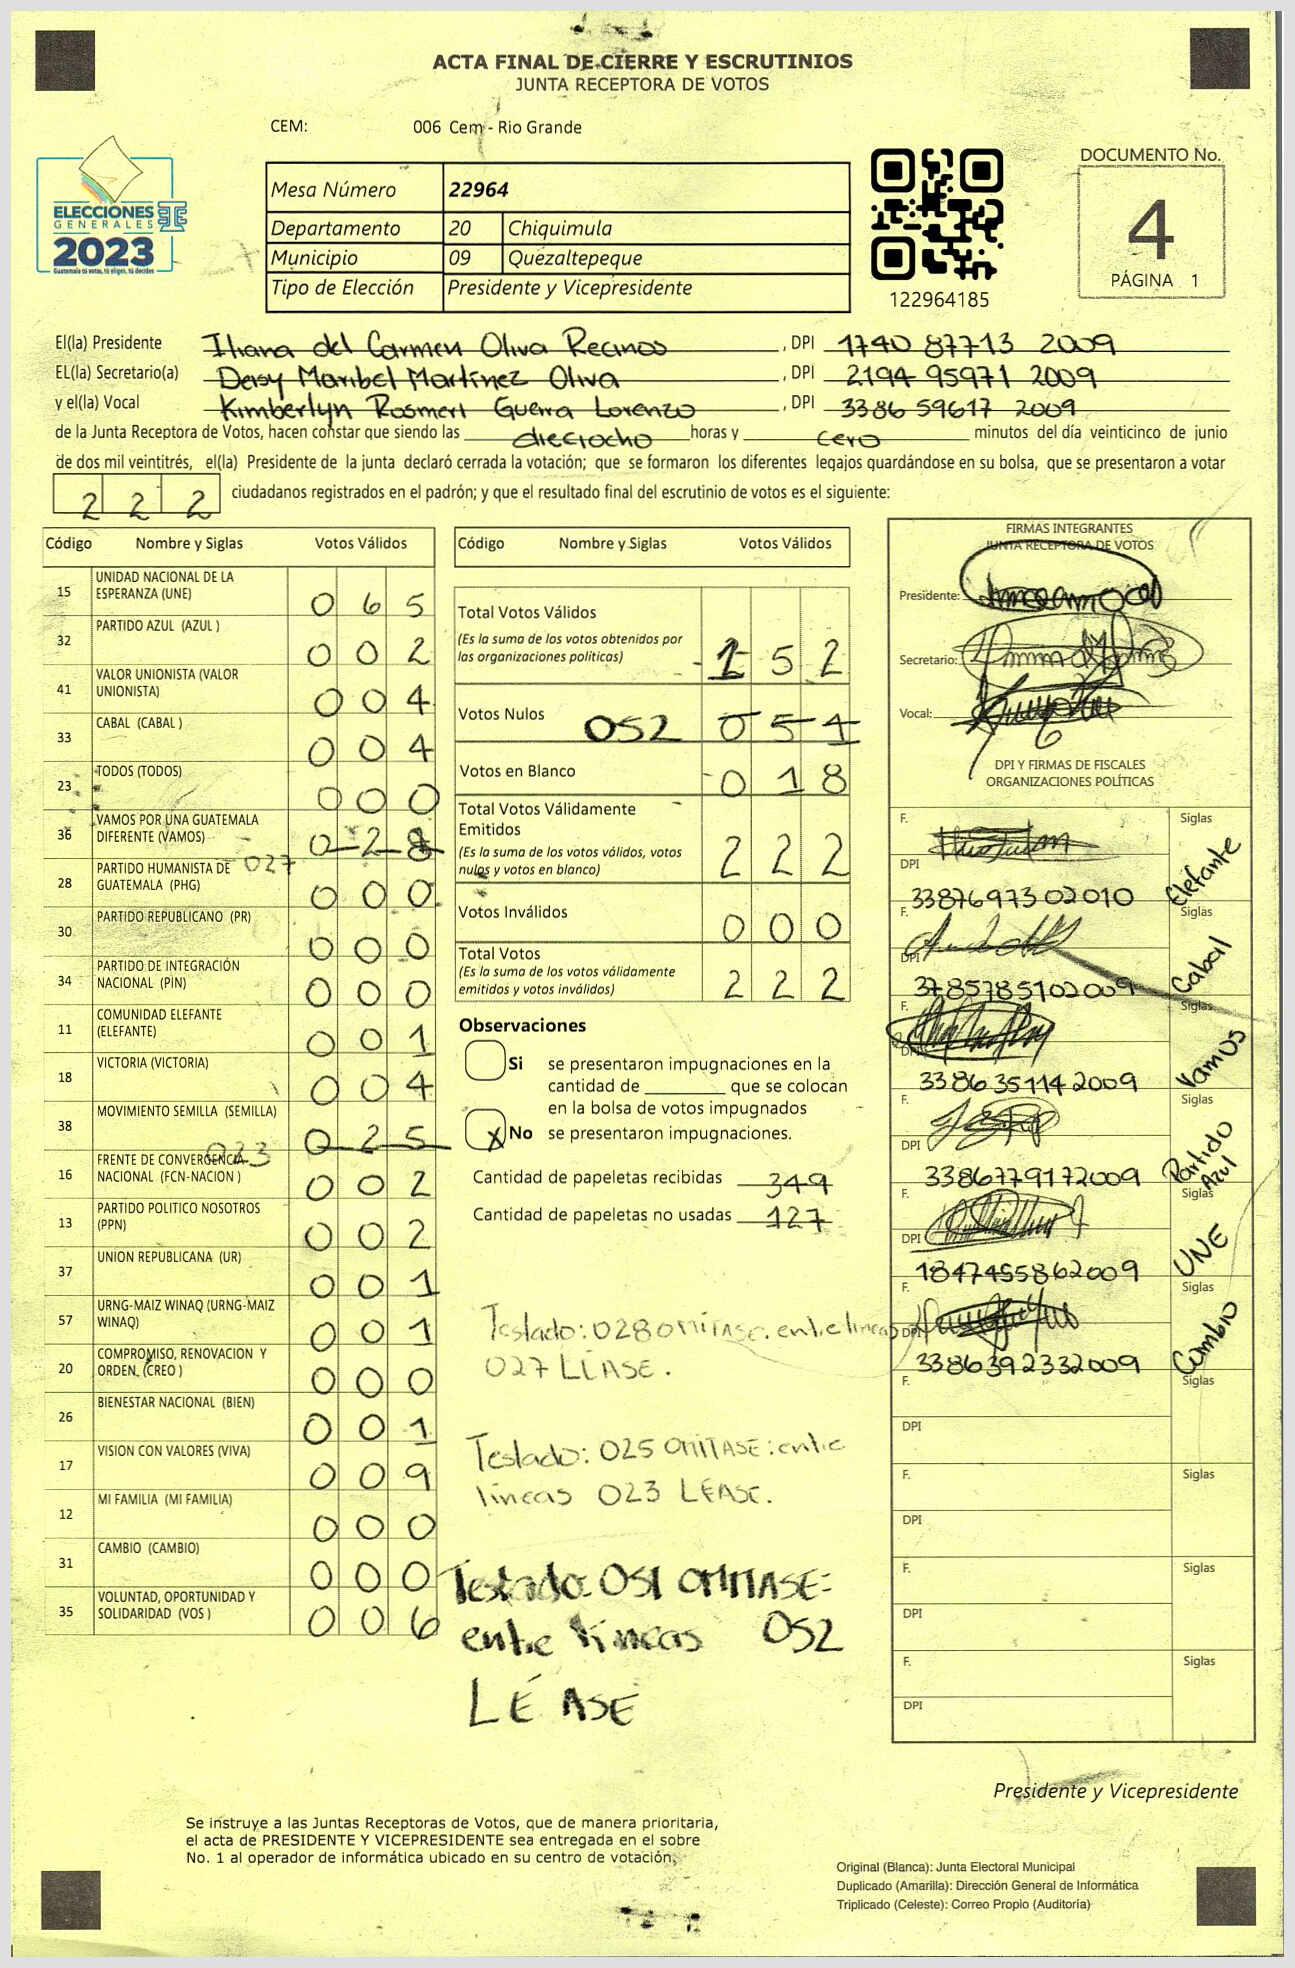 ACTA FINAL DE CIERRE Y ESCRUTINIOS
JUNTA RECEPTORA DE VOTOS
CEM: 006 Cem - Rio Grande
ELECCIONES
GENERALES
2023
Guatemala tú votas, tú eliges, tú decides
Mesa Número 22964
Departamento 20 Chiquimula
Municipio 09 Quezaltepeque
Tipo de Elección Presidente y Vicepresidente
122964185
DOCUMENTO No.
4
PÁGINA 1
El(la) Presidente Iliana del Carmen Oliva Recinos, DPI 1740 87713 2009
EL(la) Secretario(a) Deisy Maribel Martínez Oliva, DPI 2194 95971 2009
y el(la) Vocal Kimberlyn Rosmeri Guerra Lorenzo, DPI 3386 59617 2009
de la Junta Receptora de Votos, hacen constar que siendo las dieciocho horas y cero minutos del día veinticinco de junio
de dos mil veintitrés, el(la) Presidente de la junta declaró cerrada la votación; que se formaron los diferentes legajos quardándose en su bolsa, que se presentaron a votar
222 ciudadanos registrados en el padrón; y que el resultado final del escrutinio de votos es el siguiente:
Código Nombre y Siglas Votos Válidos
15 UNIDAD NACIONAL DE LA ESPERANZA (UNE) 065
32 PARTIDO AZUL (AZUL ) 002
41 VALOR UNIONISTA (VALOR UNIONISTA) 004
33 CABAL (CABAL ) 004
23 TODOS (TODOS) 000
36 VAMOS POR UNA GUATEMALA DIFERENTE (VAMOS) 028
027
28 PARTIDO HUMANISTA DE GUATEMALA (PHG) 000
30 PARTIDO REPUBLICANO (PR) 000
34 PARTIDO DE INTEGRACIÓN NACIONAL (PIN) 000
11 COMUNIDAD ELEFANTE (ELEFANTE) 001
18 VICTORIA (VICTORIA) 004
38 MOVIMIENTO SEMILLA (SEMILLA) 025
023
16 FRENTE DE CONVERGENCIA NACIONAL (FCN-NACION ) 002
13 PARTIDO POLITICO NOSOTROS (PPN) 002
37 UNION REPUBLICANA (UR) 001
57 URNG-MAIZ WINAQ (URNG-MAIZ WINAQ) 001
20 COMPROMISO, RENOVACION Y ORDEN. (CREO ) 000
26 BIENESTAR NACIONAL (BIEN) 001
17 VISION CON VALORES (VIVA) 009
12 MI FAMILIA (MI FAMILIA) 000
31 CAMBIO (CAMBIO) 000
35 VOLUNTAD, OPORTUNIDAD Y SOLIDARIDAD (VOS ) 006
Código Nombre y Siglas Votos Válidos
Total Votos Válidos 152
(Es la suma de los votos obtenidos por
las organizaciones políticas)
Votos Nulos 052 051
Votos en Blanco 018
Total Votos Válidamente
Emitidos 222
(Es la suma de los votos válidos, votos
nulos y votos en blanco)
Votos Inválidos 000
Total Votos 222
(Es la suma de los votos válidamente
emitidos y votos inválidos)
Observaciones
Si se presentaron impugnaciones en la
cantidad de ________ que se colocan
en la bolsa de votos impugnados
X No se presentaron impugnaciones.
Cantidad de papeletas recibidas 349
Cantidad de papeletas no usadas 127
Testado: 028 OMITASE. entre lineas
027 LÉASE.
Testado: 025 OMITASE: entre
líneas 023 LÉASE.
Testado: 051 OMITASE:
entre líneas 052
LÉASE
FIRMAS INTEGRANTES
JUNTA RECEPTORA DE VOTOS
Presidente:
Secretario:
Vocal:
DPI Y FIRMAS DE FISCALES
ORGANIZACIONES POLÍTICAS
F. Siglas
DPI 33876973 02010 Elefante
F. Siglas
DPI 3785785102009 Cabal
F. Siglas
DPI 3386 35114 2009 Vamos
F. Siglas
DPI 3386779172009 Partido Azul
F. Siglas
DPI 1847455862009 UNE
F. Siglas
DPI 3386392332009 Cambio
F. Siglas
DPI
F. Siglas
DPI
F. Siglas
DPI
F. Siglas
DPI
Presidente y Vicepresidente
Se instruye a las Juntas Receptoras de Votos, que de manera prioritaria,
el acta de PRESIDENTE Y VICEPRESIDENTE sea entregada en el sobre
No. 1 al operador de informática ubicado en su centro de votación.
Original (Blanca): Junta Electoral Municipal
Duplicado (Amarilla): Dirección General de Informática
Triplicado (Celeste): Correo Propio (Auditoría)